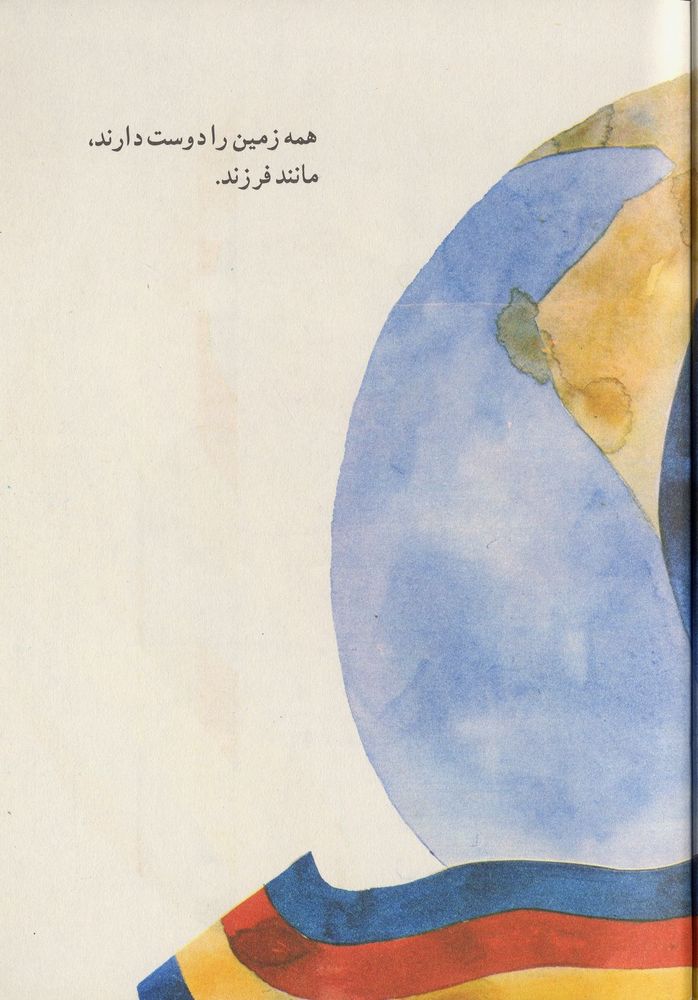 همه زمین را دوست دارند،
مانند فرزند.